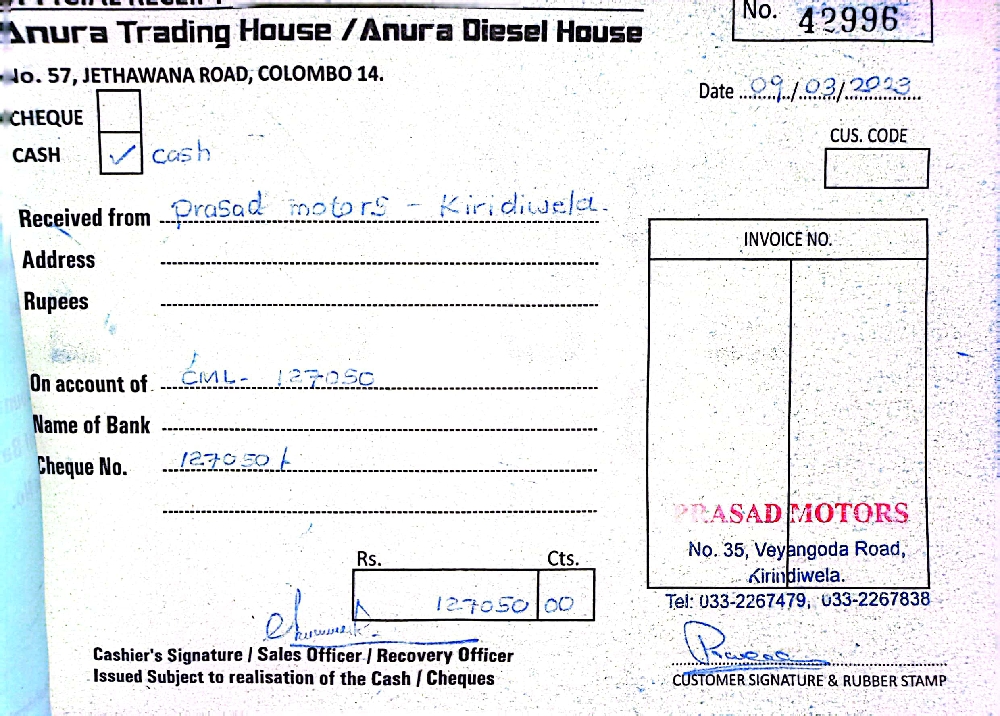 OFFICIAL RECEIPT
Anura Trading House / Anura Diesel House
No. 42996
No. 57, JETHAWANA ROAD, COLOMBO 14.
Date 09/03/2023
CHEQUE
CASH ✓ cash
CUS. CODE
Received from Prasad motors - Kiridiwela.
Address
Rupees
INVOICE NO.
On account of CML- 127050
Name of Bank
Cheque No. 127050/
PRASAD MOTORS
No. 35, Veyangoda Road,
Kirindiwela.
Tel: 033-2267479, 033-2267838
Rs. Cts.
127050 00
Cashier's Signature / Sales Officer / Recovery Officer
Issued Subject to realisation of the Cash / Cheques
CUSTOMER SIGNATURE & RUBBER STAMP